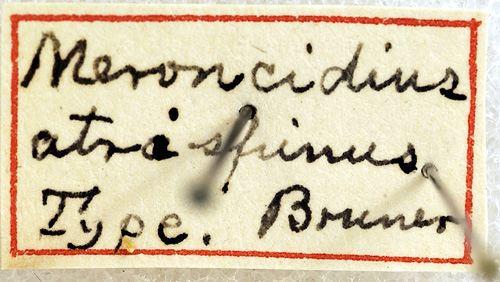 Meroncidius
atrispinus
Type. Bruner